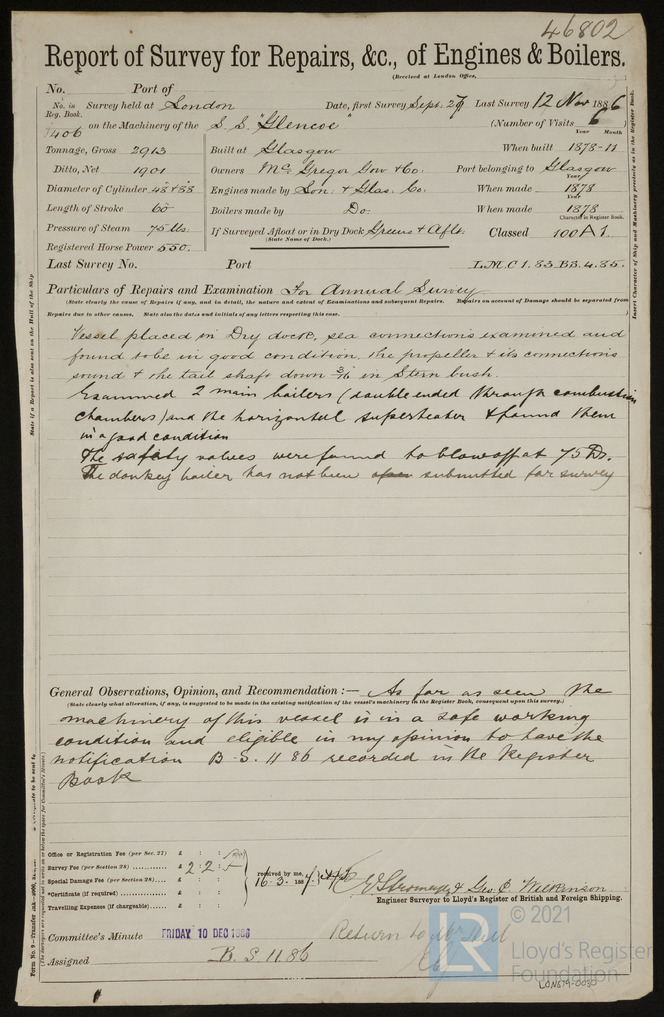 46802
Report of Survey for Repairs, &c., of Engines & Boilers.
(Received at London Office,
No. Port of
No. in Reg. Book. Survey held at London Date, first Survey Sept. 27 Last Survey 12 Nov 1886
1406 on the Machinery of the S.S. "Glencoe" (Number of Visits 6)
Year Month
Tonnage, Gross 2913 Built at Glasgow When built 1878-11
Ditto, Net 1901 Owners McGregor Gow & Co. Port belonging to Glasgow
Year
Diameter of Cylinder 48 & 88 Engines made by Lon. & Glas. Co. When made 1878
Year
Length of Stroke 60 Boilers made by Do. When made 1878
Character in Register Book.
Pressure of Steam 75 lbs. If Surveyed Afloat or in Dry Dock Greens & Aflt. Classed 100A1
(State Name of Dock.)
Registered Horse Power 550.
Last Survey No. Port L.M.C 1.83.BB.4.85.
Particulars of Repairs and Examination For Annual Survey
(State clearly the cause of Repairs if any, and in detail, the nature and extent of Examinations and subsequent Repairs. Repairs on account of Damage should be separated from
Repairs due to other causes, State also the dates and initials of any letters respecting this case.)
Vessel placed in Dry dock, sea connections examined and
found to be in good condition, the propeller & its connections
sound & the tail shaft down 3/16 in Stern bush.
Examined 2 main boilers (double ended through combustion
chambers) and the horizontal superheater & found them
in a good condition
The safety valves were found to blow off at 75 lbs.
The donkey boiler has not been submitted for survey
General Observations, Opinion, and Recommendation :— As far as seen the
(State clearly what alteration, if any, is suggested to be made in the existing notification of the vessel's machinery in the Register Book, consequent upon this survey.)
machinery of this vessel is in a safe working
condition and eligible in my opinion to have the
notification B.S. 11 86 recorded in the Register
Book
Office or Registration Fee (per Sec. 27) £ : :
Survey Fee (per Section 28) £ 2 : 2 : -
Special Damage Fee (per Section 28) £ : :
*Certificate (if required) £ : :
Travelling Expenses (if chargeable) £ : :
received by me,
16.3.1887
E Stromeyer & Geo. C. Wilkinson
Engineer Surveyor to Lloyd's Register of British and Foreign Shipping.
Committee's Minute FRIDAY 10 DEC 1886
Return to
Assigned B.S. 11 86
LR
© 2021
Lloyd's Register
Foundation
LON679-0030
State if a Report is also sent on the Hull of the Ship
Insert Character of Ship and Machinery precisely as in the Register Book.